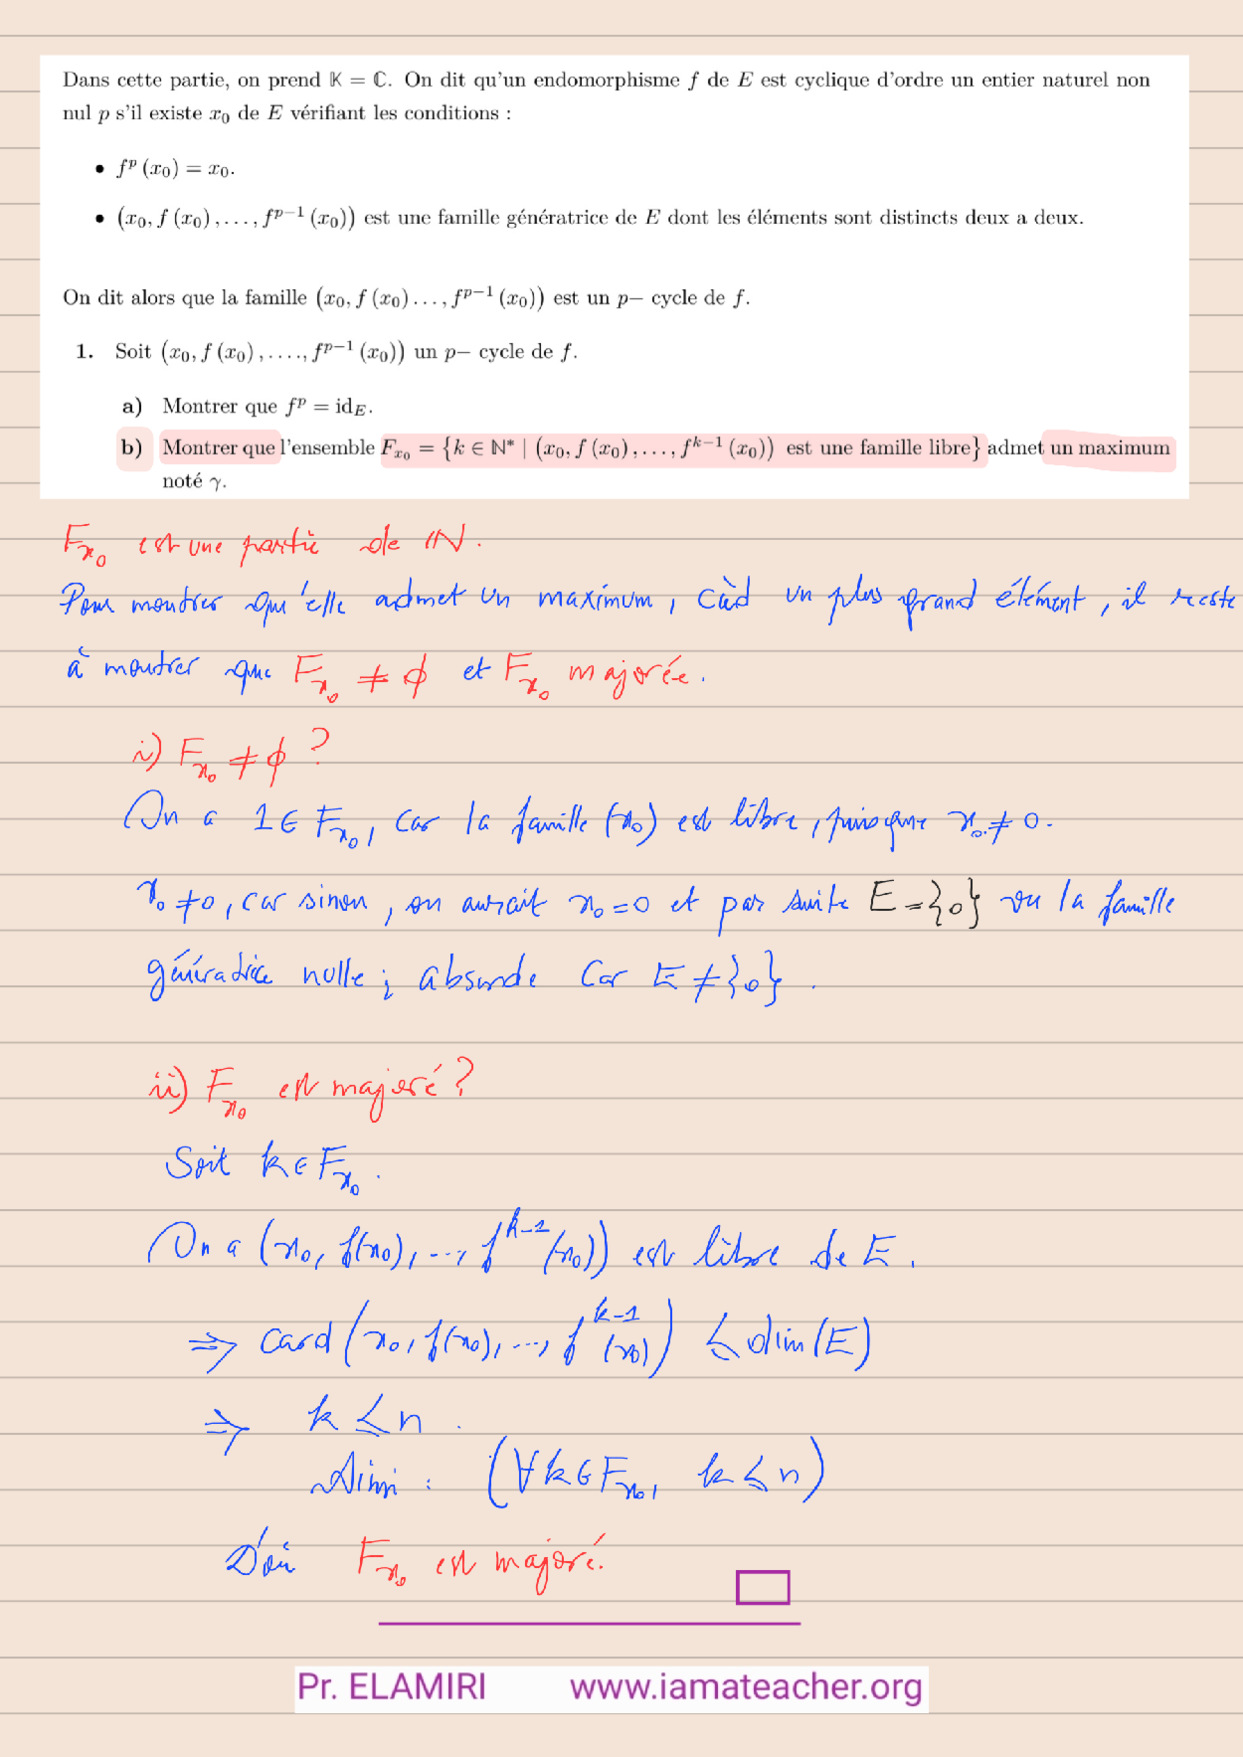 Dans cette partie, on prend 𝕂 = ℂ. On dit qu'un endomorphisme f de E est cyclique d'ordre un entier naturel non
nul p s'il existe x₀ de E vérifiant les conditions :
• fᵖ (x₀) = x₀.
• (x₀, f (x₀), . . . , fᵖ⁻¹ (x₀)) est une famille génératrice de E dont les éléments sont distincts deux a deux.
On dit alors que la famille (x₀, f (x₀) . . . , fᵖ⁻¹ (x₀)) est un p− cycle de f.
1. Soit (x₀, f (x₀) , . . . ., fᵖ⁻¹ (x₀)) un p− cycle de f.
a) Montrer que fᵖ = id_E.
b) Montrer que l'ensemble F_{x₀} = {k ∈ ℕ* | (x₀, f (x₀), . . . , fᵏ⁻¹ (x₀)) est une famille libre} admet un maximum
noté γ.
F_{x₀} est une partie de ℕ.
Pour montrer qu'elle admet un maximum, càd un plus grand élément, il reste
à montrer que F_{x₀} ≠ ∅ et F_{x₀} majorée.
i) F_{x₀} ≠ ∅ ?
On a 1 ∈ F_{x₀}, car la famille (x₀) est libre, puisque x₀ ≠ 0.
x₀ ≠ 0, car sinon, on aurait x₀ = 0 et par suite E = {0} vu la famille
génératrice nulle ; absurde car E ≠ {0}.
ii) F_{x₀} est majoré ?
Soit k ∈ F_{x₀}.
On a (x₀, f(x₀), ..., fᵏ⁻¹(x₀)) est libre de E.
⇒ card (x₀, f(x₀), ..., fᵏ⁻¹(x₀)) ≤ dim(E)
⇒ k ≤ n.
Ainsi : (∀k ∈ F_{x₀}, k ≤ n)
D'où F_{x₀} est majoré.
Pr. ELAMIRI www.iamateacher.org